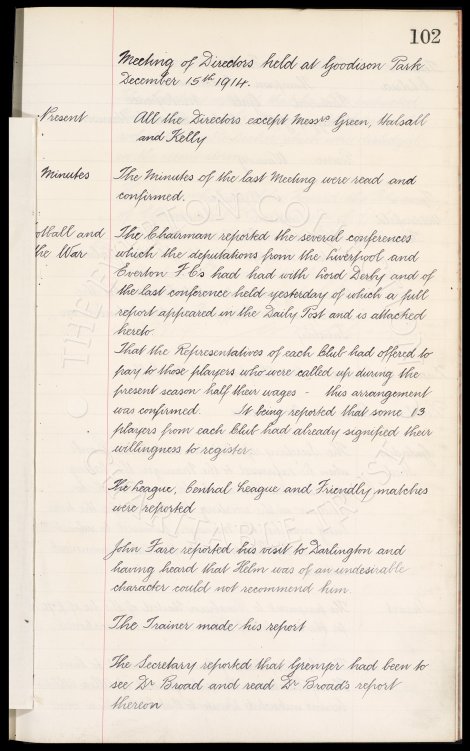 102
Meeting of Directors held at Goodison Park
December 15th 1914.
Present
All the Directors except Messrs Green, Halsall
and Kelly
Minutes
The Minutes of the last Meeting were read and
confirmed.
otball and
the War
The Chairman reported the several conferences
which the deputations from the Liverpool and
Everton F.Cs had had with Lord Derby and of
the last conference held yesterday of which a full
report appeared in the Daily Post and is attached
hereto.
That the Representatives of each Club had offered to
pay to those players who were called up during the
present season half their wages - this arrangement
was confirmed. It being reported that some 13
players from each Club had already signified their
willingness to register
The League, Central League and Friendly matches
were reported
John Fare reported his visit to Darlington and
having heard that Helm was of an undesirable
character could not recommend him.
The Trainer made his report
The Secretary reported that Grenyer had been to
see Dr Broad and read Dr Broad's report
thereon